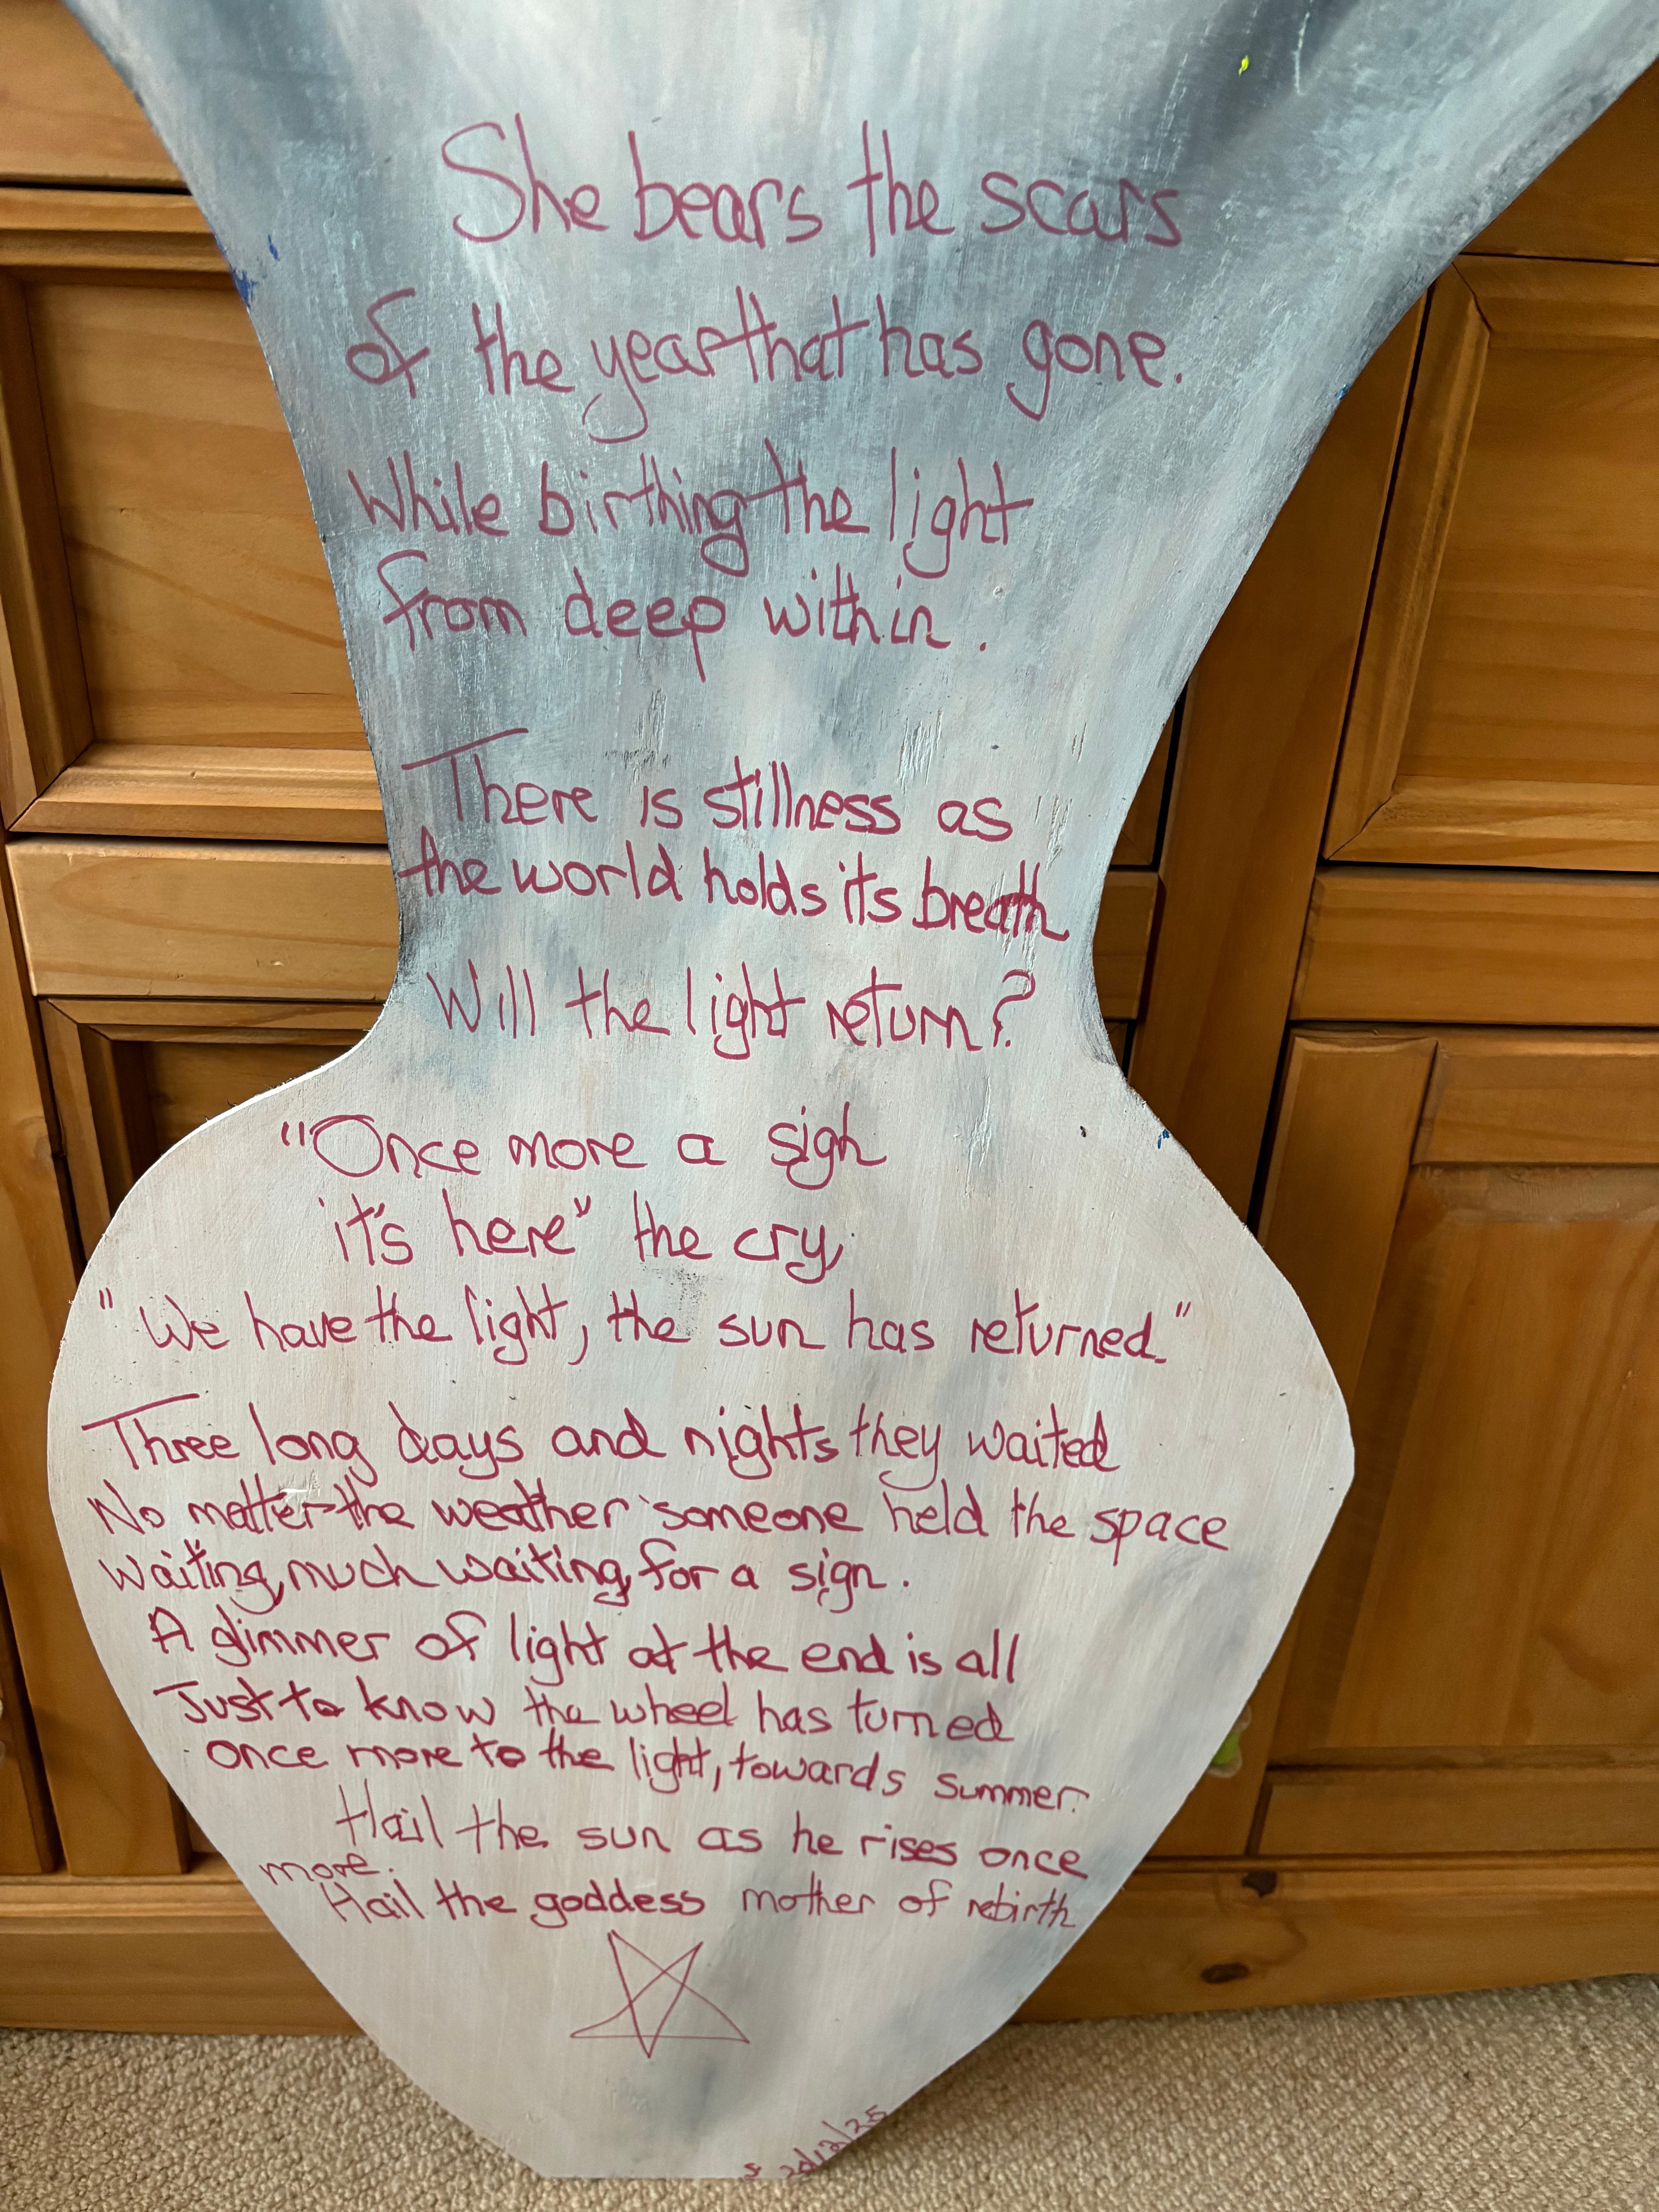 She bears the scars
of the year that has gone.
While birthing the light
from deep within.
There is stillness as
the world holds its breath
Will the light return?
"Once more a sigh
it's here" the cry,
"We have the light, the sun has returned."
Three long days and nights they waited
No matter the weather someone held the space
waiting, much waiting, for a sign.
A glimmer of light at the end is all
Just to know the wheel has turned
once more to the light, towards summer.
Hail the sun as he rises once
more.
Hail the goddess mother of rebirth